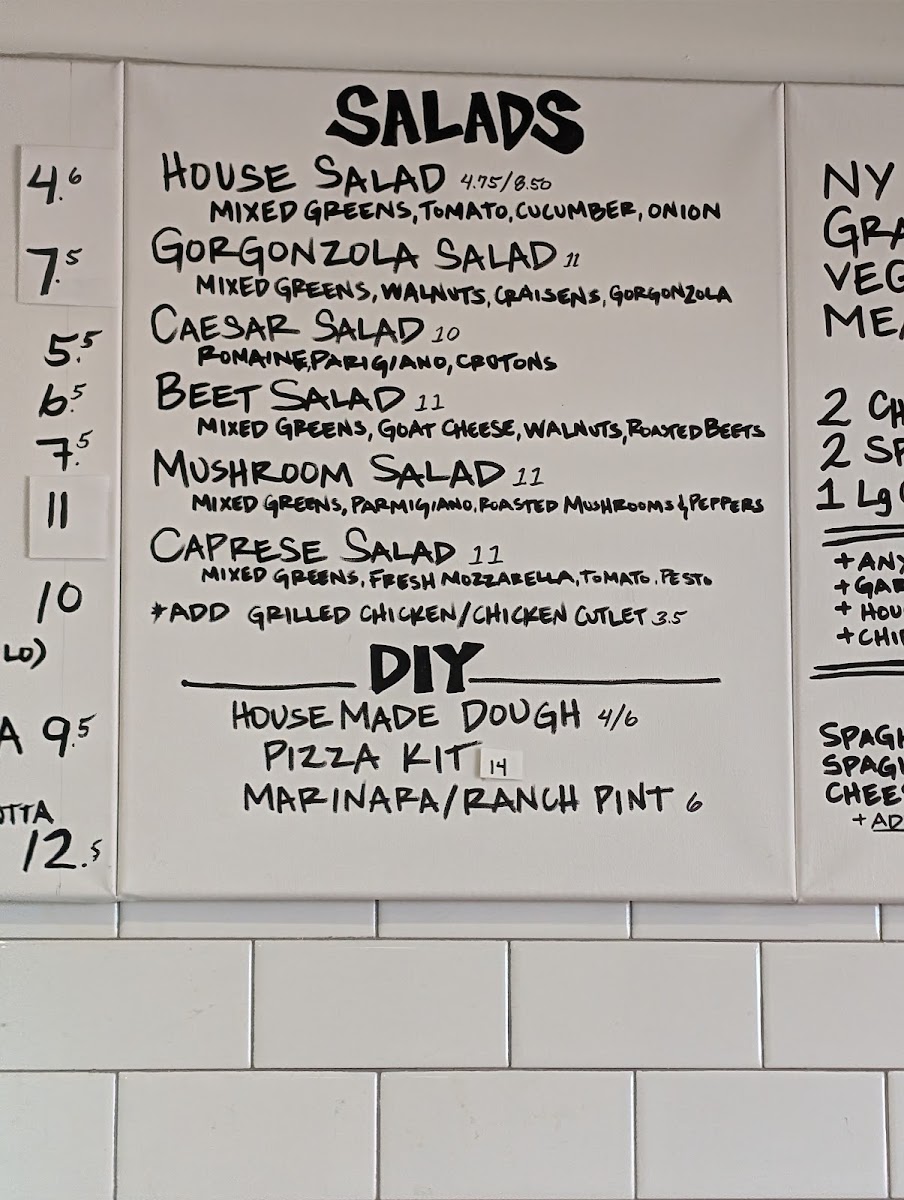 4.6
7.5
5.5
6.5
7.5
11
10
LO)
A 9.5
OTTA
12.5
SALADS
HOUSE SALAD 4.75/8.50
MIXED GREENS, TOMATO, CUCUMBER, ONION
GORGONZOLA SALAD 11
MIXED GREENS, WALNUTS, CRAISENS, GORGONZOLA
CAESAR SALAD 10
ROMAINE, PARIGIANO, CROTONS
BEET SALAD 11
MIXED GREENS, GOAT CHEESE, WALNUTS, ROASTED BEETS
MUSHROOM SALAD 11
MIXED GREENS, PARMIGIANO, ROASTED MUSHROOMS & PEPPERS
CAPRESE SALAD 11
MIXED GREENS, FRESH MOZZARELLA, TOMATO, PESTO
*ADD GRILLED CHICKEN/CHICKEN CUTLET 3.5
DIY
HOUSEMADE DOUGH 4/6
PIZZA KIT 14
MARINARA/RANCH PINT 6
NY
GRA
VEG
MEA
2 CH
2 SP
1 Lg
+ ANY
+ GAR
+ HOU
+ CHI
SPAGH
SPAG
CHEES
+ AD